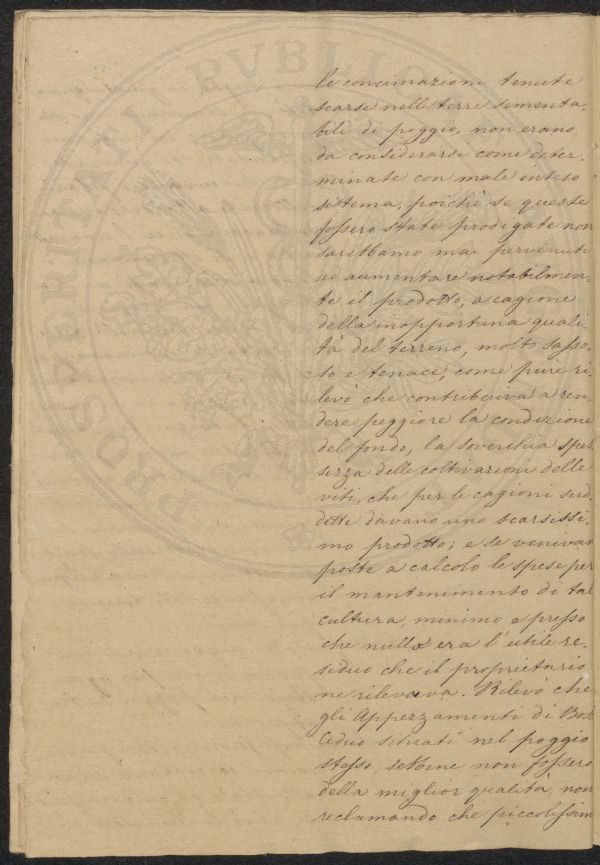 PROSPERITATI PVBLIC
le concimazioni tenute
scarse nelle terre sementa-
bili di poggio, non erano
da considerarsi come deter-
minate con male inteso
sistema, poichè se queste
fossero state prodigate non
sarebbamo mai pervenuti
ad aumentare notabilmen-
te il prodotto, a cagione
della inopportuna quali-
tà del terreno, molto sasso-
so e tenace, come pure ri-
levò che contribuiva a ren-
dere peggiore la condizione
del fondo, la soverchia spes-
sezza delle coltivazioni delle
viti, che per le cagioni sud-
dette davano uno scarsissi-
mo prodotto; e se venivan
poste a calcolo le spese per
il mantenimento di tal
cultura, minimo e presso
che nullo era l'utile re-
siduo che il proprietario
ne rilevava. Rilevò che
gli Appezzamenti di Bos
Ceduo situati nel poggio
stesso, sebbene non fossero
della miglior qualità, non
reclamando che piccolissim